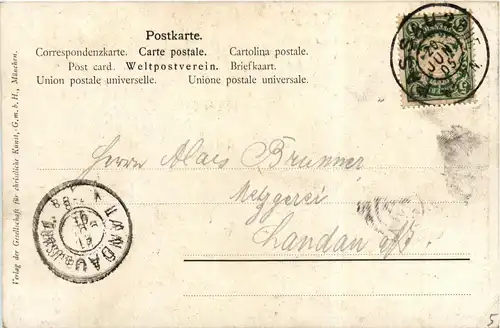 Postkarte.
Correspondenzkarte. Carte postale. Cartolina postale.
Post card. Weltpostverein. Briefkaart.
Union postale universelle. Unione postale universale.
Verlag der Gesellschaft für christliche Kunst, G. m. b. H., München.
JUN
05
Herrn Alois Brunner
Metzgerei
Landau a/I.
LANDAU
5